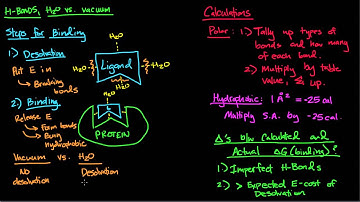 H-Bonds, H2O vs. vacuum
Steps for Binding
1.) Desolvation
Put E in
↳ Breaking bonds
2.) Binding
Release E
↳ Form bonds
↳ Bury Hydrophobic
Vacuum vs. H2O
No desolvation
Desolvation
H2O
H2O
H2O
H2O
Ligand
H2O
L
PROTEIN
Calculations
Polar: 1.) Tally up types of bonds and how many of each.
2.) Multiply by table value, Σ up.
Hydrophobic: 1 Å² = -25 cal
Multiply S.A. by -25 cal.
Δ's b/w Calculated and
Actual ΔG (binding)?
1.) Imperfect H-Bonds
2.) > Expected E-cost of
Desolvation